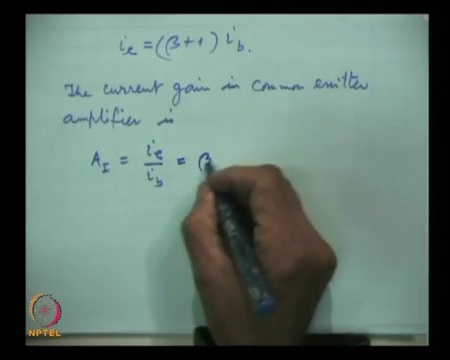 i_e = (β+1) i_b.
The current gain in common emitter
amplifier is
A_I = i_e / i_b = β
NPTEL